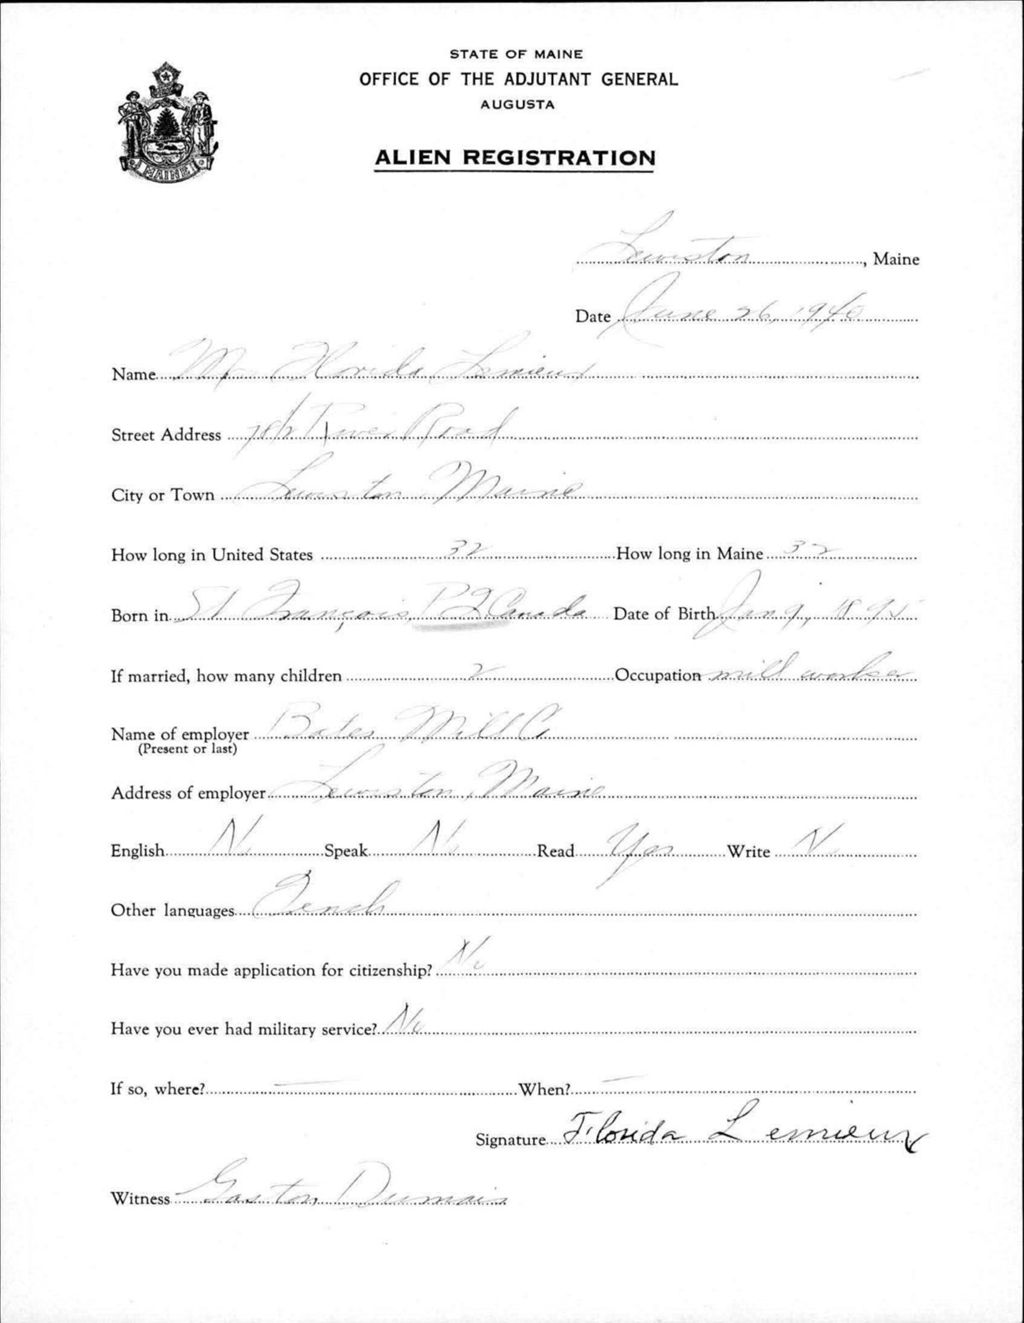 STATE OF MAINE
OFFICE OF THE ADJUTANT GENERAL
AUGUSTA
ALIEN REGISTRATION
MAINE
Lewiston, Maine
Date June 26, 1940
Name Florida Lemieux
Street Address River Road
City or Town Lewiston Maine
How long in United States 32 How long in Maine 32
Born in St François, P Q Canada Date of Birth Jan 9, 1895
If married, how many children 2 Occupation mill worker
Name of employer Bates Mill Co
(Present or last)
Address of employer Lewiston, Maine
English No Speak No Read Yes Write No
Other languages French
Have you made application for citizenship? No
Have you ever had military service? No
If so, where? — When? —
Signature Florida Lemieux
Witness Gaston Dumais